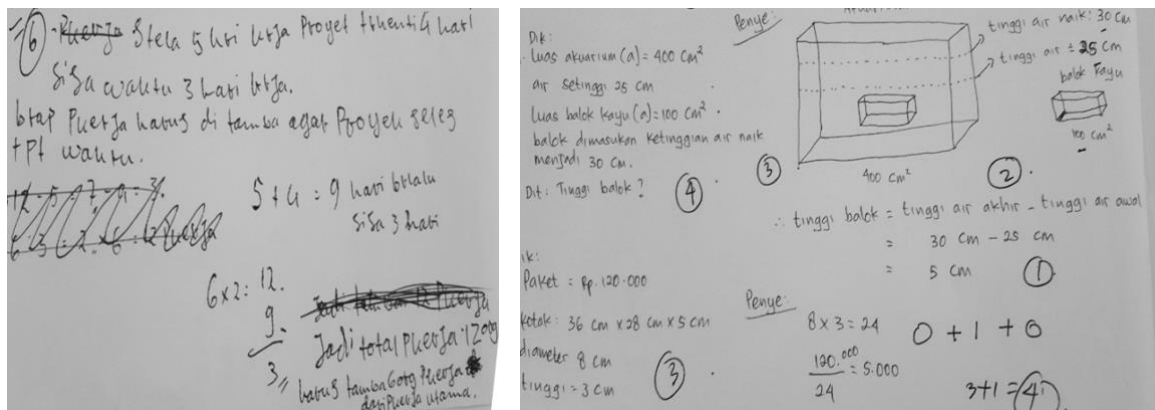 6
Stela 5 hri krja Proyet trhenti 4 hari
sisa waktu 3 hari krja.
brap Pkerja harus di tamba agar Proyek seles
tpt waktu.
5 + 4 = 9 hari brlalu
sisa 3 hari
6 x 2 = 12.
9.
3
Jadi total Pkerja 12 org
harus tamba 6 org Pkerja
dari Pkerja utama.
4
Dik:
Luas akuarium (a) = 400 cm²
air setinggi 25 cm
Luas balok kayu (a) = 100 cm²
balok dimasukan ketinggian air naik
menjadi 30 cm.
Dit: Tinggi balok?
4
3
Penye:
tinggi air naik: 30 cm
tinggi air = 25 cm
balok kayu
100 cm²
400 cm²
2
∴ tinggi balok = tinggi air akhir - tinggi air awal
= 30 cm - 25 cm
= 5 cm
1
ik:
Paket = Rp. 120.000
kotak: 36 cm x 28 cm x 5 cm
diameter 8 cm
tinggi = 3 cm
3
Penye:
8 x 3 = 24
120.000 = 5.000
24
0 + 1 + 0
3+1 = 4